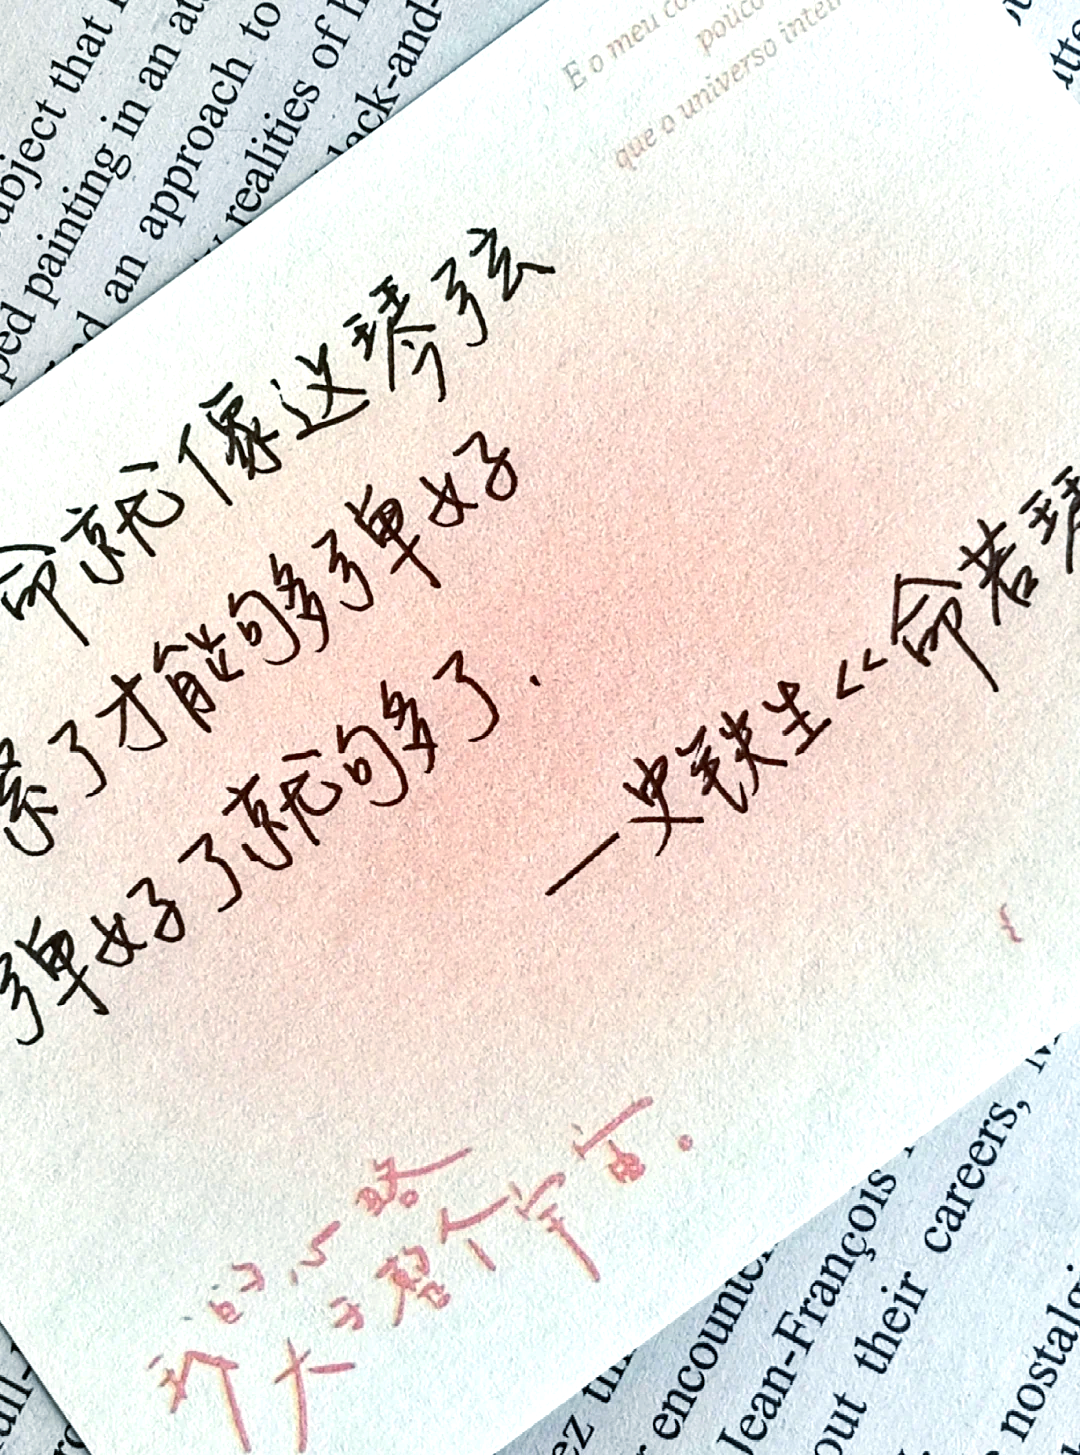 E o meu
pouco
que o universo
命就像这琴弦
紧了才能够弹好
弹好了就够了.
—史铁生《命若琴
我的心略
大于整个宇宙.
ubject that
ped painting in an
an approach to
realities of
ack-and-
encounte
Jean-François
out their careers,
nostalgi